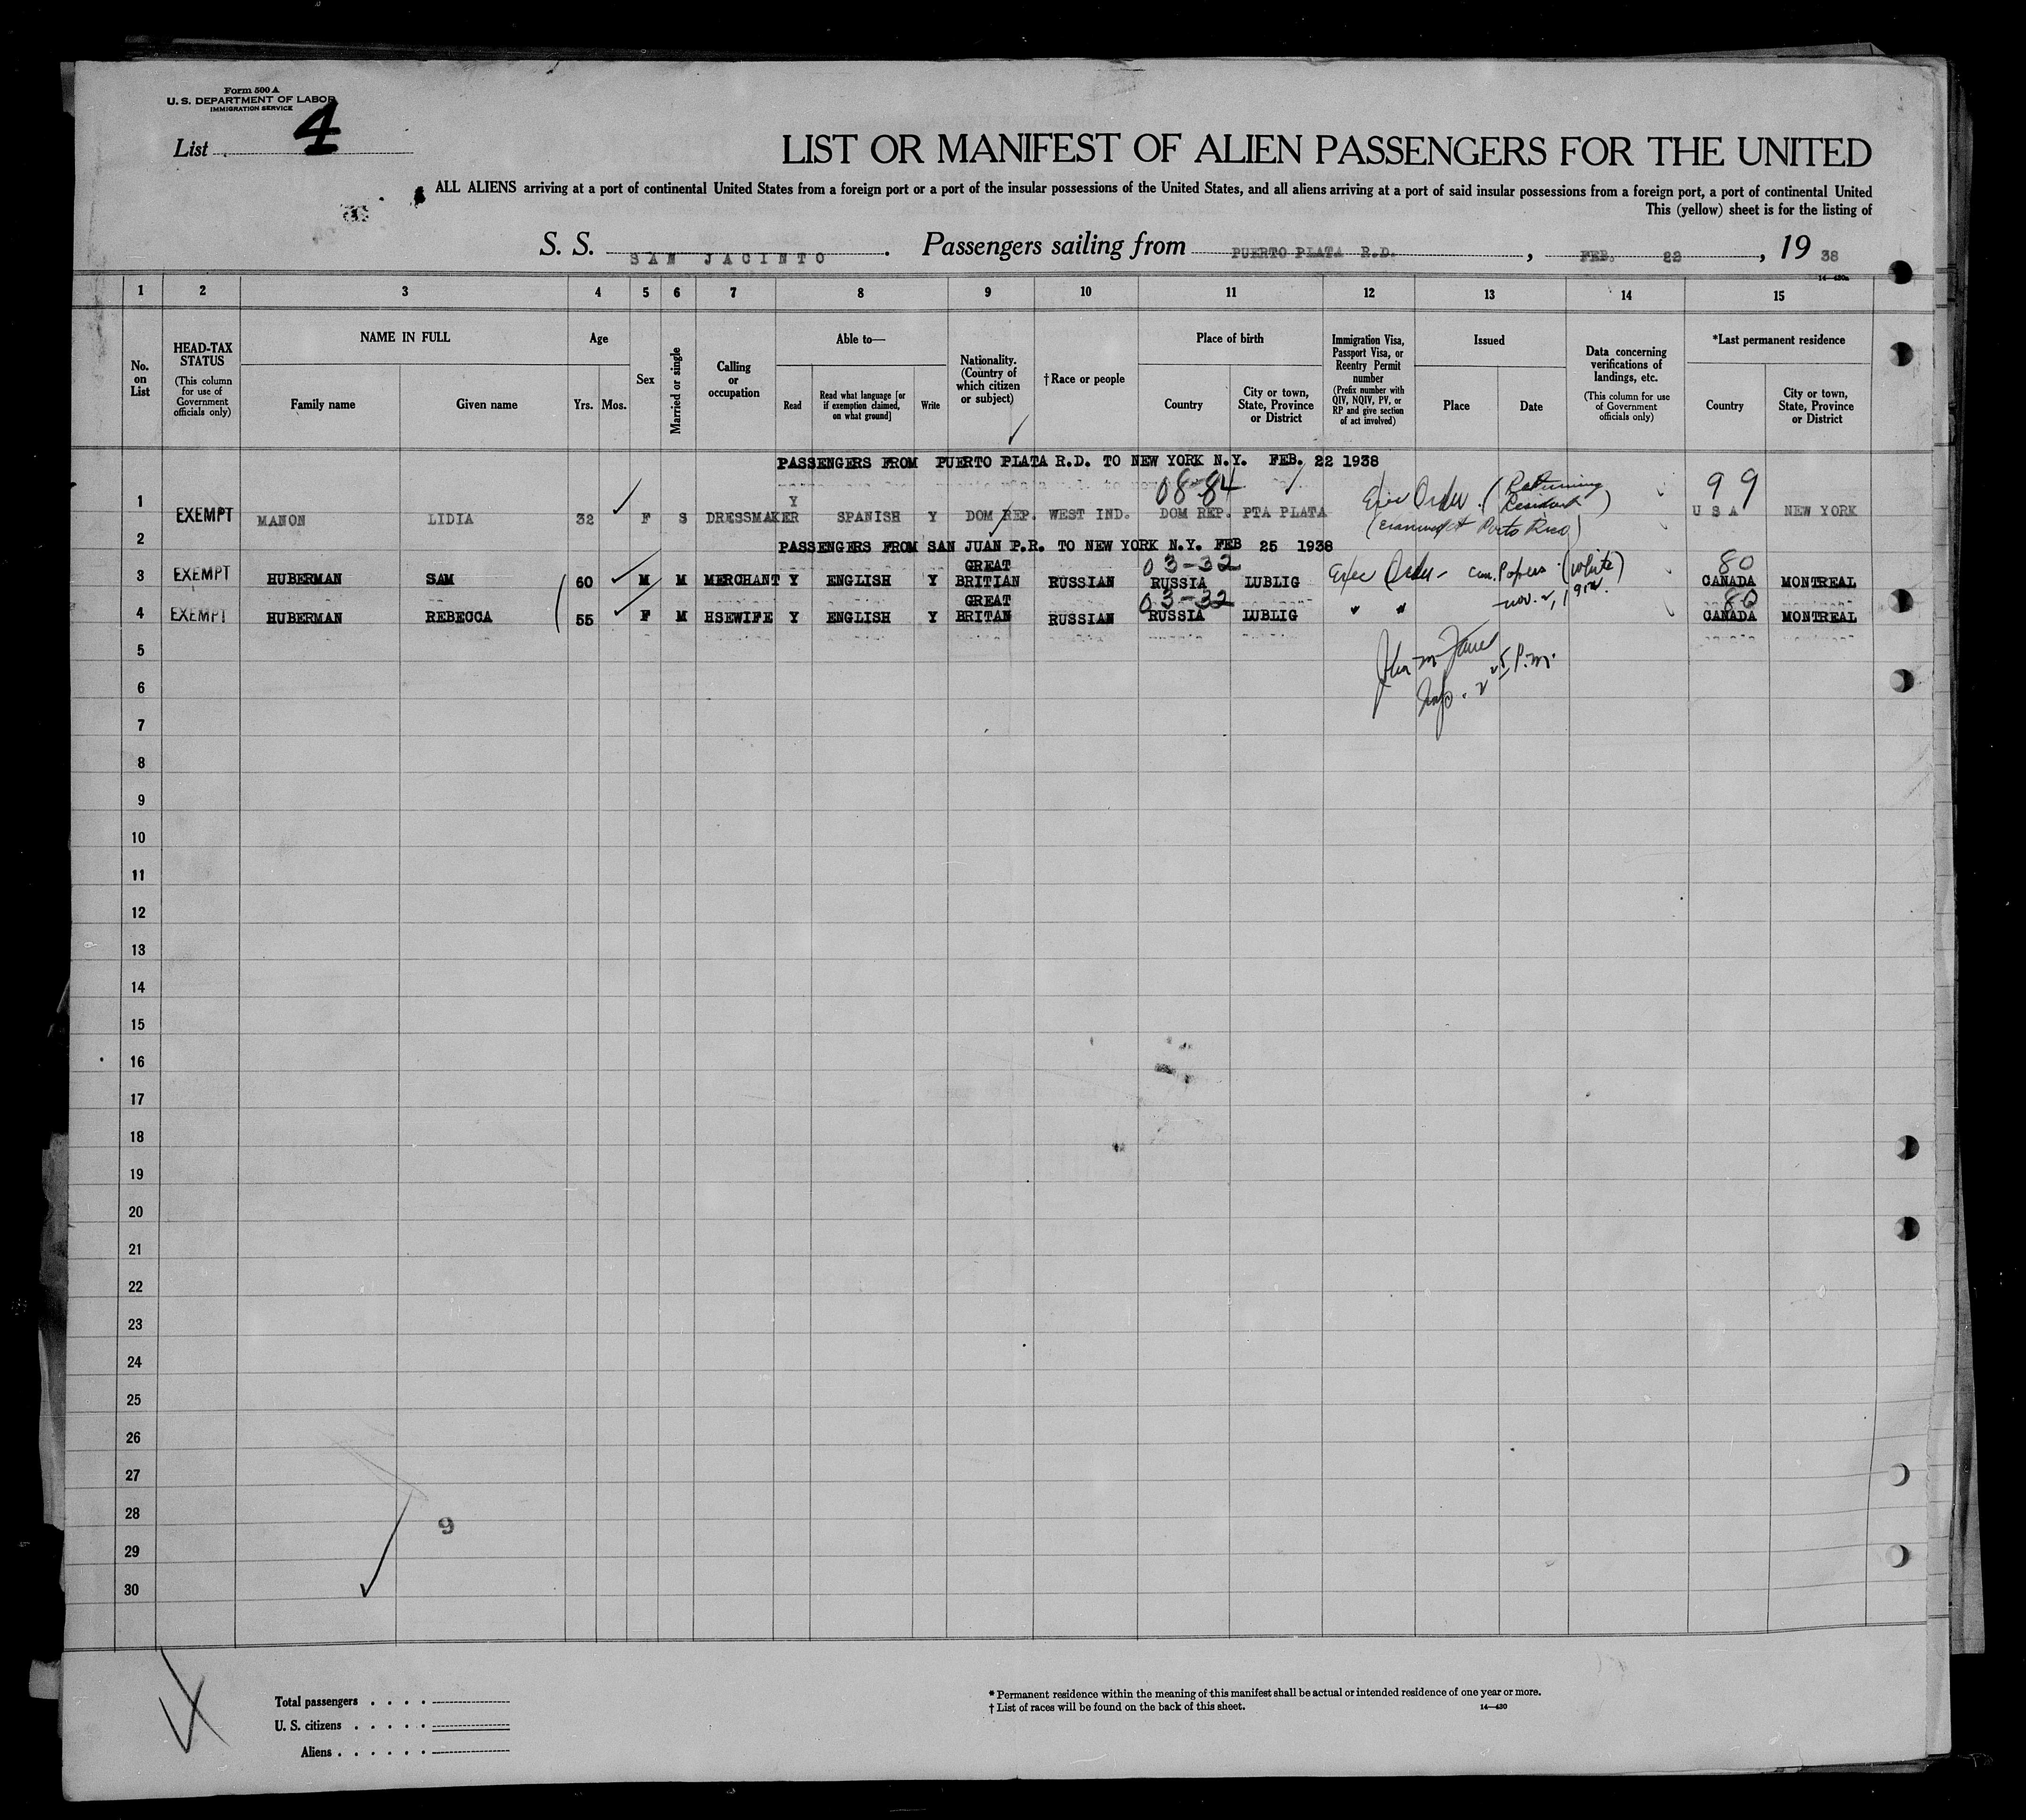 Form 500 A
U. S. DEPARTMENT OF LABOR
IMMIGRATION SERVICE
List 4
LIST OR MANIFEST OF ALIEN PASSENGERS FOR THE UNITED
ALL ALIENS arriving at a port of continental United States from a foreign port or a port of the insular possessions of the United States, and all aliens arriving at a port of said insular possessions from a foreign port, a port of continental United
This (yellow) sheet is for the listing of
S. S. SAN JACINTO. Passengers sailing from PUERTO PLATA R.D., FEB. 22, 19 38
14—430a
1 2 3 4 5 6 7 8 9 10 11 12 13 14 15
No. on List
HEAD-TAX STATUS (This column for use of Government officials only)
NAME IN FULL
Family name Given name
Age
Yrs. Mos.
Sex
Married or single
Calling or occupation
Able to—
Read
Read what language [or if exemption claimed, on what ground]
Write
Nationality. (Country of which citizen or subject)
†Race or people
Place of birth
Country
City or town, State, Province or District
Immigration Visa, Passport Visa, or Reentry Permit number (Prefix number with QIV, NQIV, PV, or RP and give section of act involved)
Issued
Place Date
Data concerning verifications of landings, etc. (This column for use of Government officials only)
*Last permanent residence
Country
City or town, State, Province or District
PASSENGERS FROM PUERTO PLATA R.D. TO NEW YORK N.Y. FEB. 22 1938
08-84 99
1 EXEMPT MANON LIDIA 32 F S DRESSMAKER Y SPANISH Y DOM REP. WEST IND. DOM REP. PTA PLATA Exec Order. (Returning Resident) U S A NEW YORK
(examined at Porto Rico)
2 PASSENGERS FROM SAN JUAN P.R. TO NEW YORK N.Y. FEB 25 1938
GREAT 03-32 80
3 EXEMPT HUBERMAN SAM 60 M M MERCHANT Y ENGLISH Y BRITIAN RUSSIAN RUSSIA LUBLIG Exec Order - Can. Papers (white) CANADA MONTREAL
GREAT 03-32 Nov. 2, 80
4 EXEMPT HUBERMAN REBECCA 55 F M HSEWIFE Y ENGLISH Y BRITAN RUSSIAN RUSSIA LUBLIG " " CANADA MONTREAL
5
6
7
8
9
10
11
12
13
14
15
16
17
18
19
20
21
22
23
24
25
26
27
28
9
29
30
Total passengers . . . .
U. S. citizens . . . . .
Aliens . . . . . .
* Permanent residence within the meaning of this manifest shall be actual or intended residence of one year or more.
† List of races will be found on the back of this sheet.
14—430